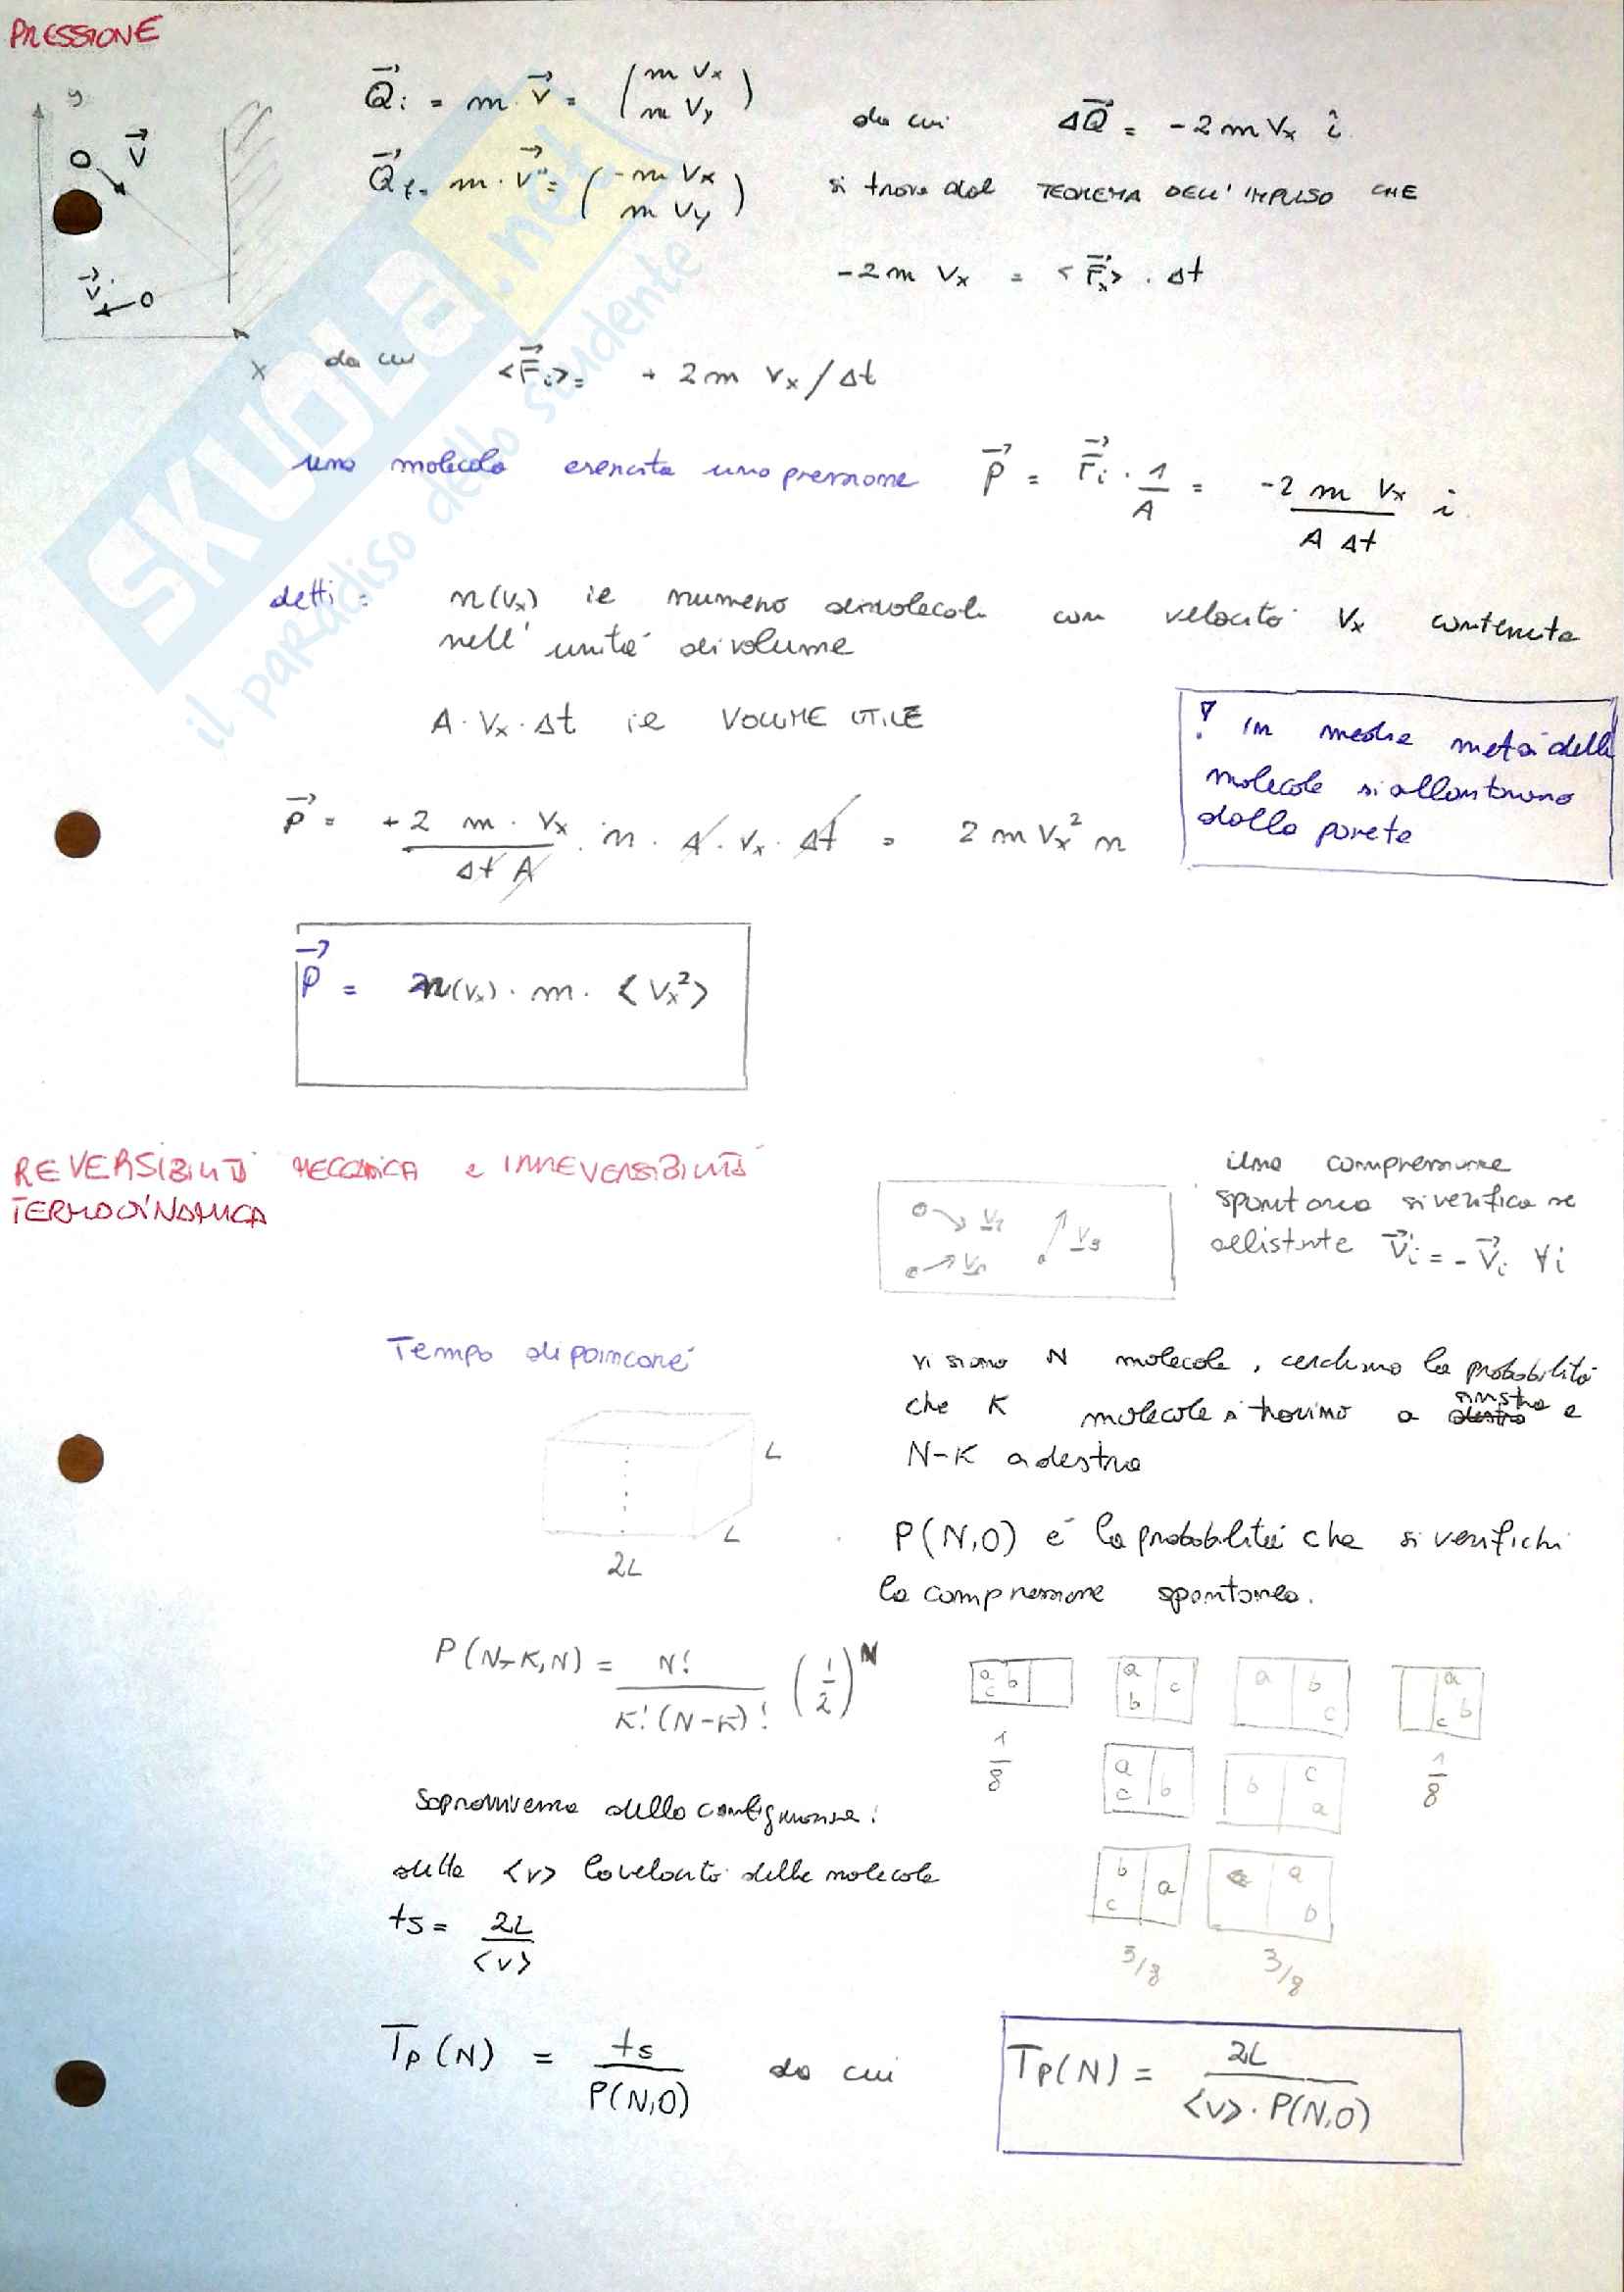 PRESSIONE
y
Qi = m · v = (m Vx
m Vy)
da cui ΔQ = -2 m Vx i
v
Qf = m · v' = (-m Vx
m Vy)
si trova dal TEOREMA DELL'IMPULSO CHE
-2 m Vx = <Fx> · Δt
v'
x
da cui <Fi> = + 2 m Vx / Δt
una molecola esercita una pressione P = Fi · 1/A = -2 m Vx / A Δt i
detti: n(Vx) ie numero di molecole con velocità Vx contenute
nell'unità di volume
A · Vx · Δt ie VOLUME UTILE
! In media metà delle
molecole si allontanano
dalla parete
P = +2 m · Vx / Δt A · n · A · Vx · Δt = 2 m Vx² n
P = n(Vx) · m · <Vx²>
REVERSIBILITÀ MECCANICA e IRREVERSIBILITÀ
TERMODINAMICA
V2
V3
V1
una compressione
spontanea si verifica se
all'istante V'i = -Vi ∀i
Tempo di poincaré
vi siano N molecole, cerchiamo la probabilità
che K molecole si trovino a sinistra e
N-K a destra
L
L
2L
P(N,0) é la probabilità che si verifichi
la compressione spontanea.
P(N-K,N) = N! / K!(N-K)! (1/2)^N
a b c
a b c
a b c
a b c
1/8
a c b
b c a
1/8
b c a
a b
3/8 3/8
Sopravvivenza della configurazione:
detta <v> la velocità delle molecole
ts = 2L / <v>
Tp(N) = ts / P(N,0) da cui Tp(N) = 2L / <v> · P(N,0)
SKUOLA.net
il paradiso dello studente